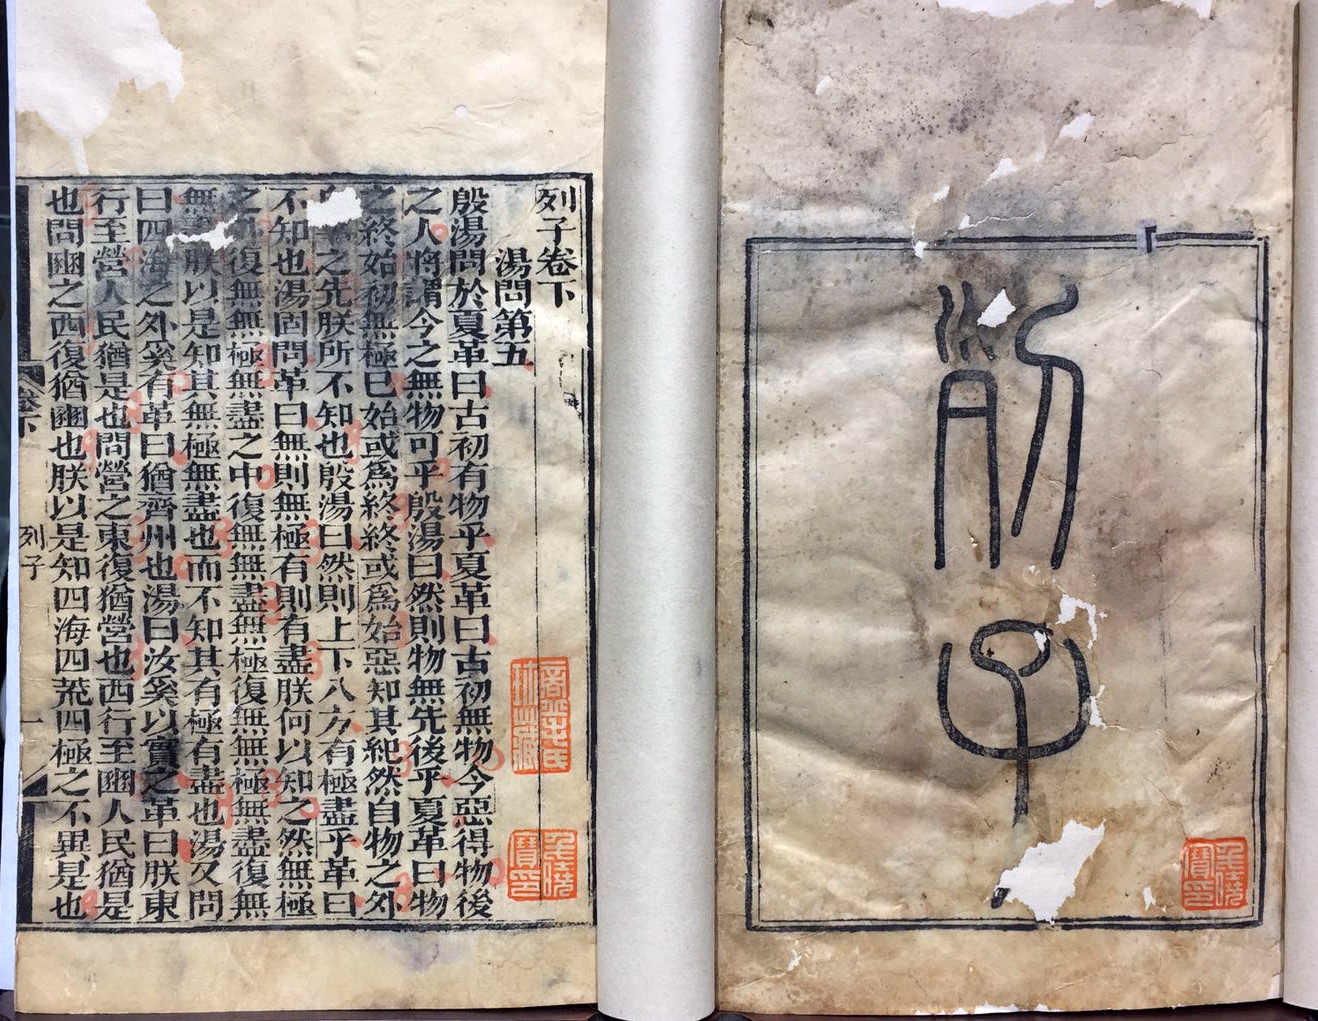 列子
列子卷下
湯問第五
殷湯問於夏革曰古初有物乎夏革曰古初無物今惡得物後
之人將謂今之無物可乎殷湯曰然則物無先後乎夏革曰物
之終始初無極已始或爲終終或爲始惡知其紀然自物之外
之先朕所不知也殷湯曰然則上下八方有極盡乎革曰
不知也湯固問革曰無則無極有則有盡朕何以知之然無極
之復無無極無盡之中復無無盡無極復無無極無盡復無
無朕以是知其無極無盡也而不知其有極有盡也湯又問
曰四海之外奚有革曰猶齊州也湯曰汝奚以實之革曰朕東
行至營人民猶是也問營之東復猶營也西行至豳人民猶是
也問豳之西復猶豳也朕以是知四海四荒四極之不異是也
卷下
列子
一